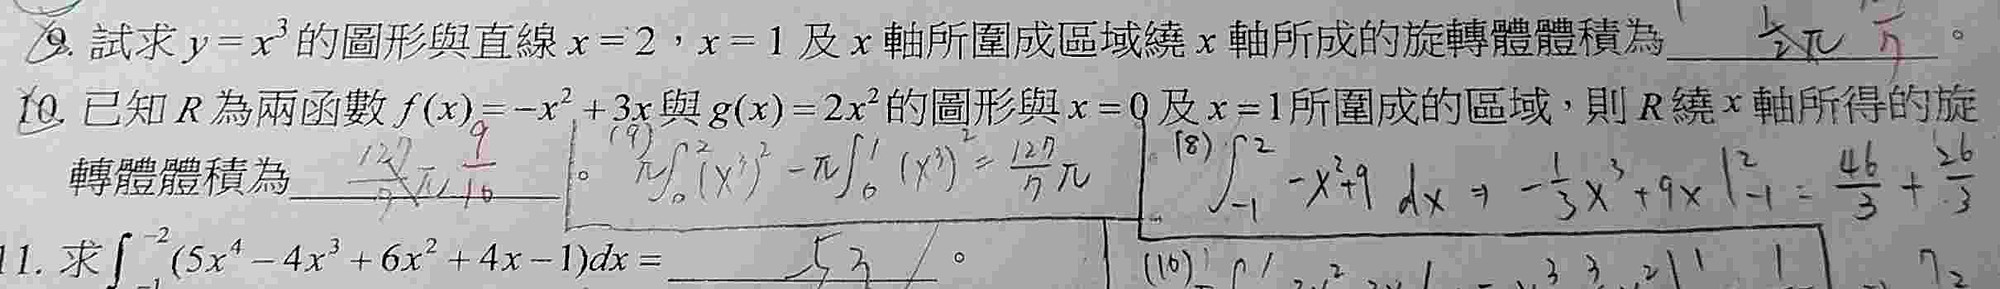 9. 試求 y = x³ 的圖形與直線 x = 2，x = 1 及 x 軸所圍成區域繞 x 軸所成的旋轉體體積為 ½π 。
10. 已知 R 為兩函數 f(x) = -x² + 3x 與 g(x) = 2x² 的圖形與 x = 0 及 x = 1 所圍成的區域，則 R 繞 x 軸所得的旋
轉體體積為 127/7 π 9/10 。
(9) π∫₀² (x³)² - π∫₀¹ (x³)² = 127/7 π
(8) ∫₋₁² -x²+9 dx ⇒ -1/3 x³ + 9x |₋₁² = 46/3 + 26/3
11. 求 ∫₋₁⁻² (5x⁴ - 4x³ + 6x² + 4x - 1)dx = 53 。
(10)